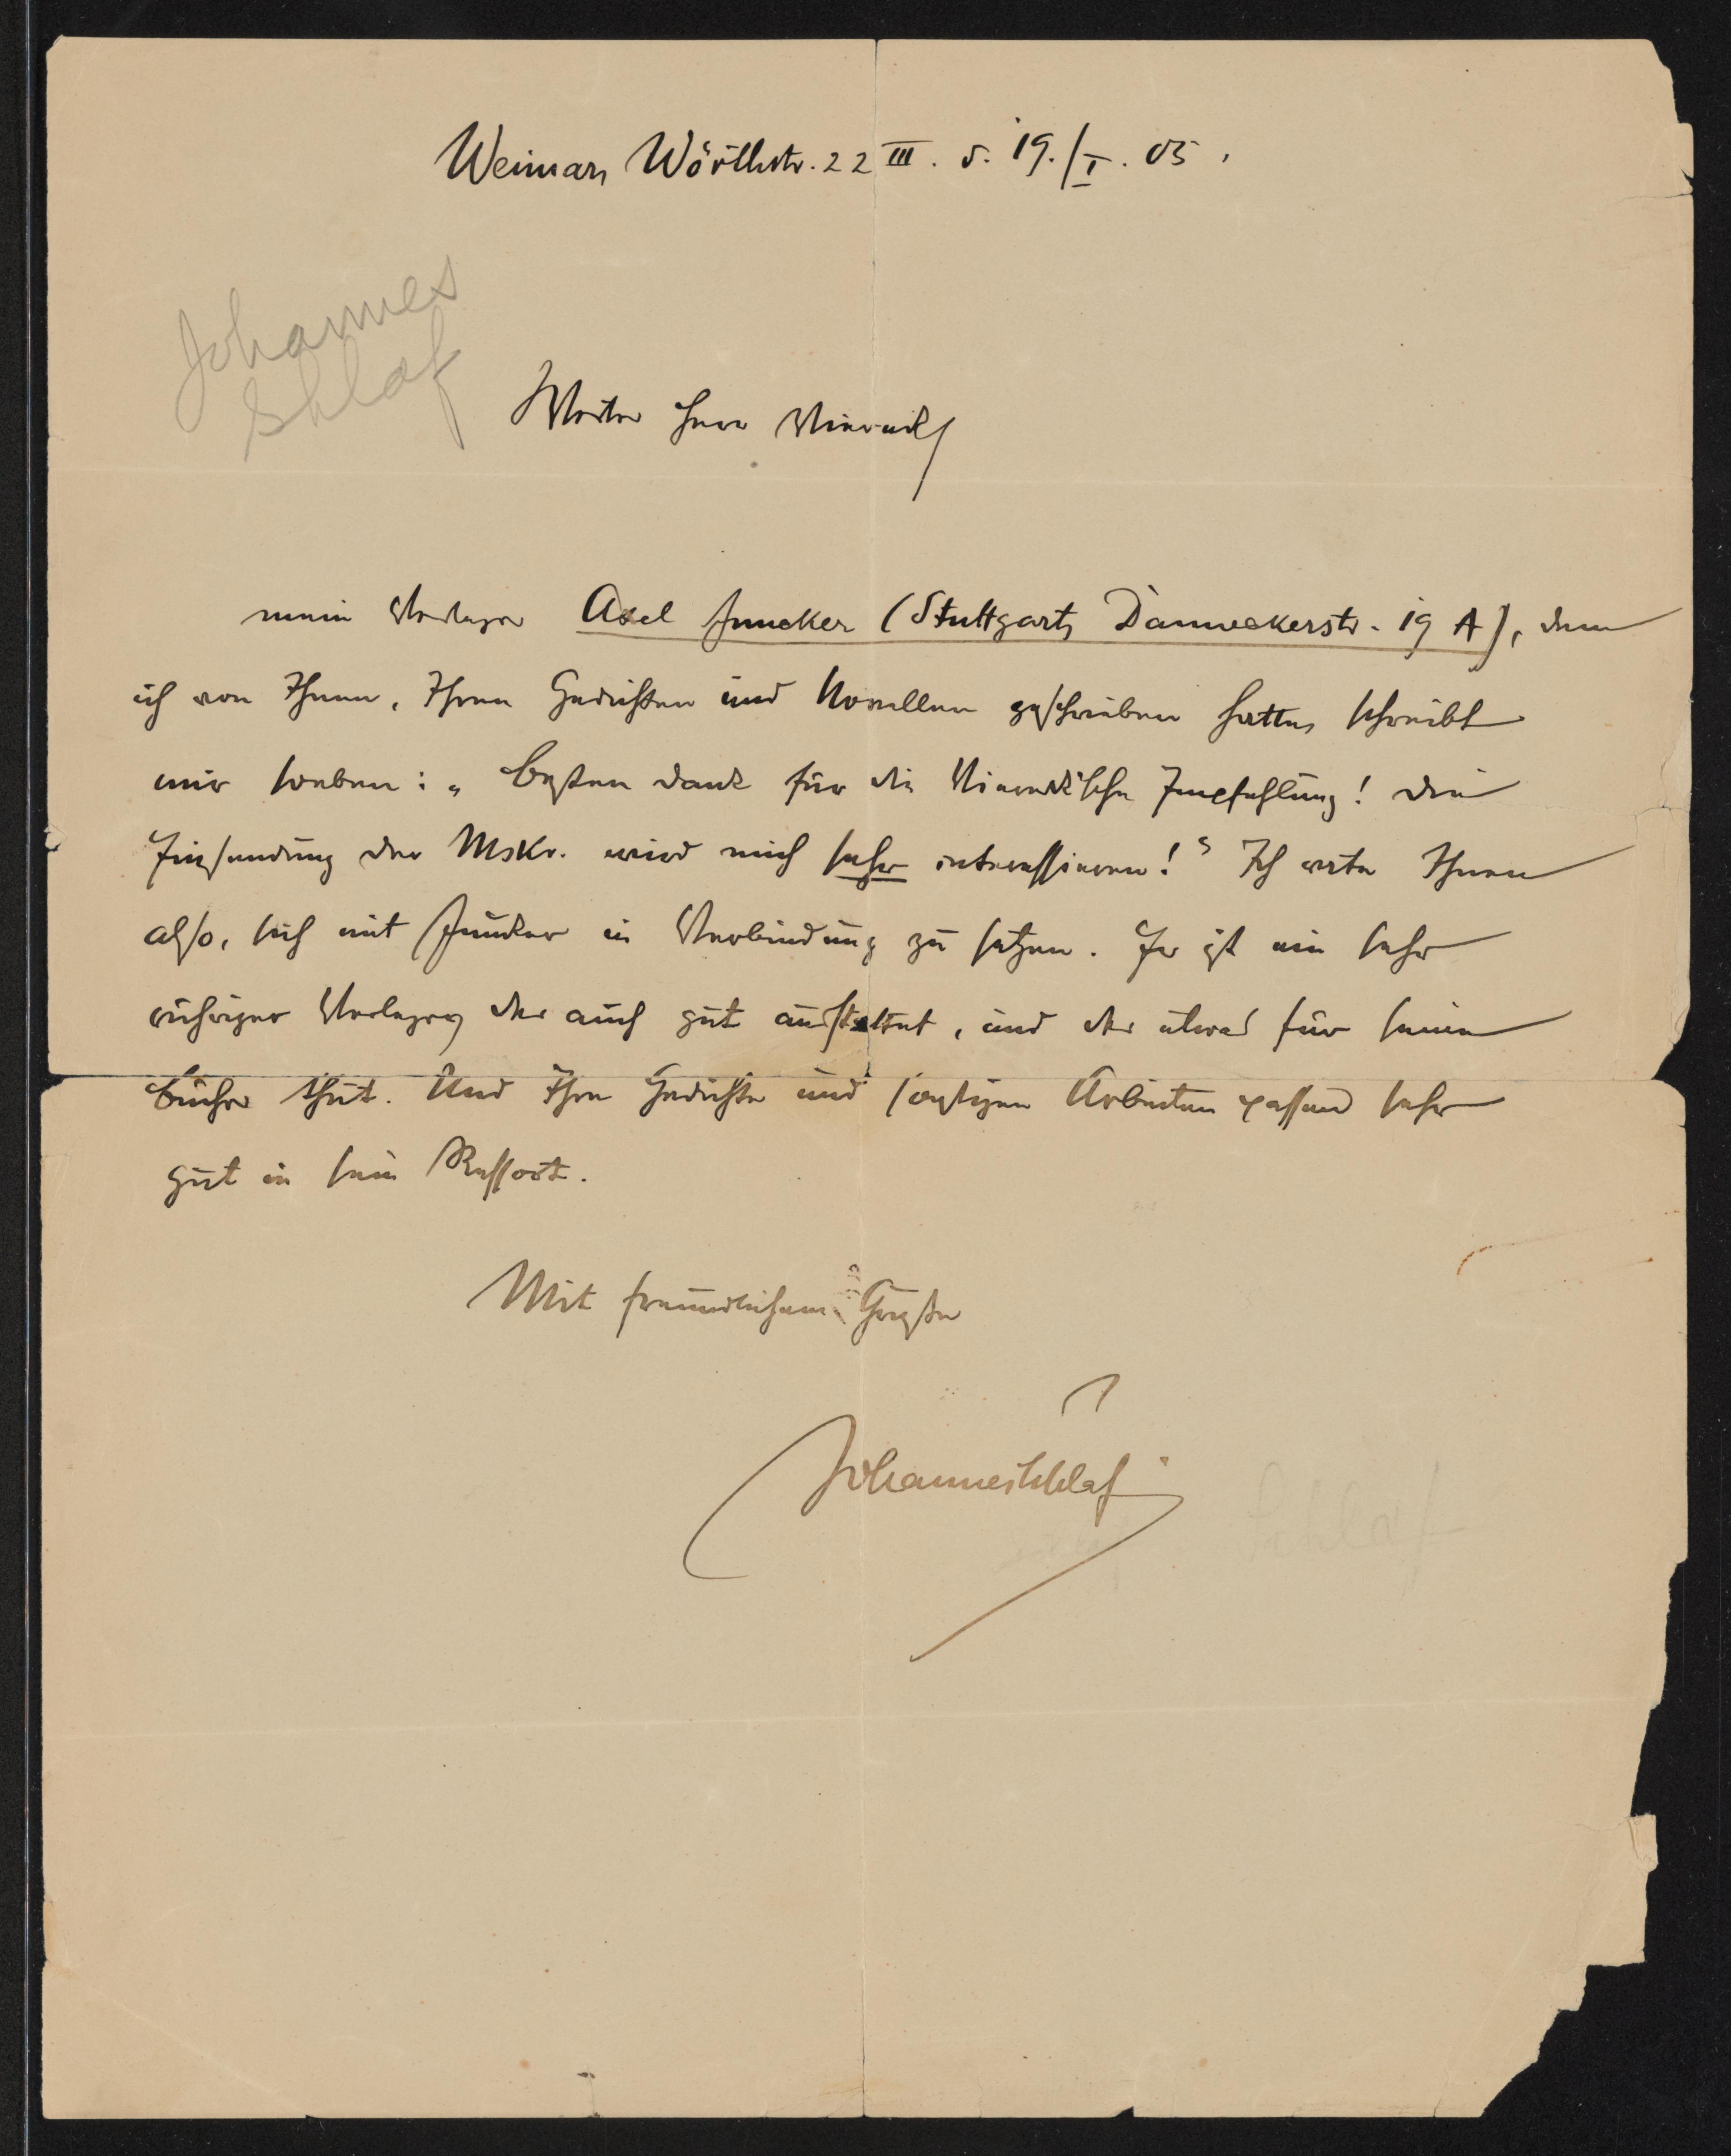 Weimar, Wörthstr. 22 III. d. 19./I. 05.
Johannes
Schlaf
Werter Herr Viereck,
mein Verleger Axel Juncker (Stuttgart, Danneckerstr. 19 A), dem
ich von Ihnen, Ihren Gedichten und Novellen geschrieben hatte, schreibt
mir soeben: „Besten Dank für die Viereck'sche Empfehlung! Die
Einsendung der Mskr. wird mich sehr interessieren!“ Ich rate Ihnen
also, sich mit Juncker in Verbindung zu setzen. Er ist ein sehr
rühriger Verleger, der auch gut ausstattet, und der etwas für seine
Bücher thut. Und Ihre Gedichte und sonstigen Arbeiten passen sehr
gut in sein Ressort.
Mit freundlichem Gruße
Johannes Schlaf
Schlaf